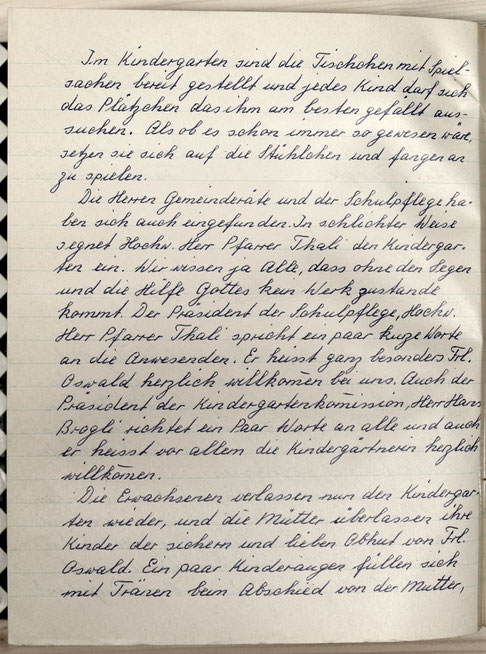 Im Kindergarten sind die Tischchen mit Spiel-
sachen bereit gestellt und jedes Kind darf sich
das Plätzchen das ihm am besten gefällt aus-
suchen. Als ob es schon immer so gewesen wäre,
setzen sie sich auf die Stühlchen und fangen an
zu spielen.
Die Herren Gemeinderäte und der Schulpflege ha-
ben sich auch eingefunden. In schlichter Weise
segnet Hochw. Herr Pfarrer Thali den Kindergar-
ten ein. Wir wissen ja Alle, dass ohne den Segen
und die Hilfe Gottes kein Werk zustande
kommt. Der Präsident der Schulpflege, Hochw.
Herr Pfarrer Thali spricht ein paar kurze Worte
an die Anwesenden. Er heisst ganz besonders Frl.
Oswald herzlich willkomen bei uns. Auch der
Präsident der Kindergartenkomission, Herr Hans
Brogli richtet ein Paar Worte an alle und auch
er heisst vor allem die Kindergärtnerin herzlich
willkomen.
Die Erwachsenen verlassen nun den Kindergar-
ten wieder, und die Mütter überlassen ihre
Kinder der sichern und lieben Obhut von Frl.
Oswald. Ein paar Kinderaugen füllen sich
mit Tränen beim Abschied von der Mutter,